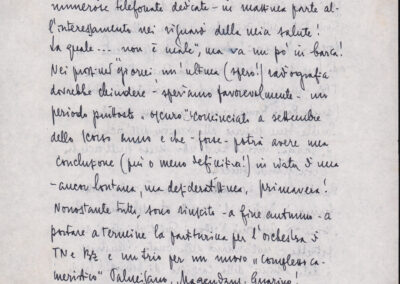 numerose telefonate dedicate - in massima parte al-
l'interessamento nei riguardi della mia salute!
La quale... non è male", ma va un po' in barca!
Nei prossimi giorni un'ultima (spero!) radiografia
dovrebbe chiudere - speriamo favorevolmente - un
periodo piuttosto "oscuro" cominciato a settembre
dello scorso anno e che - forse - potrà avere una
conclusione (più o meno definitiva!) in vista di una
- ancor lontana, ma desideratissima, primavera!
Nonostante tutto, sono riuscito - a fine autunno - a
portare a termine la partiturina per l'orchestra di
TN e BZ e un trio per un nuovo "Complesso ca-
meristico"